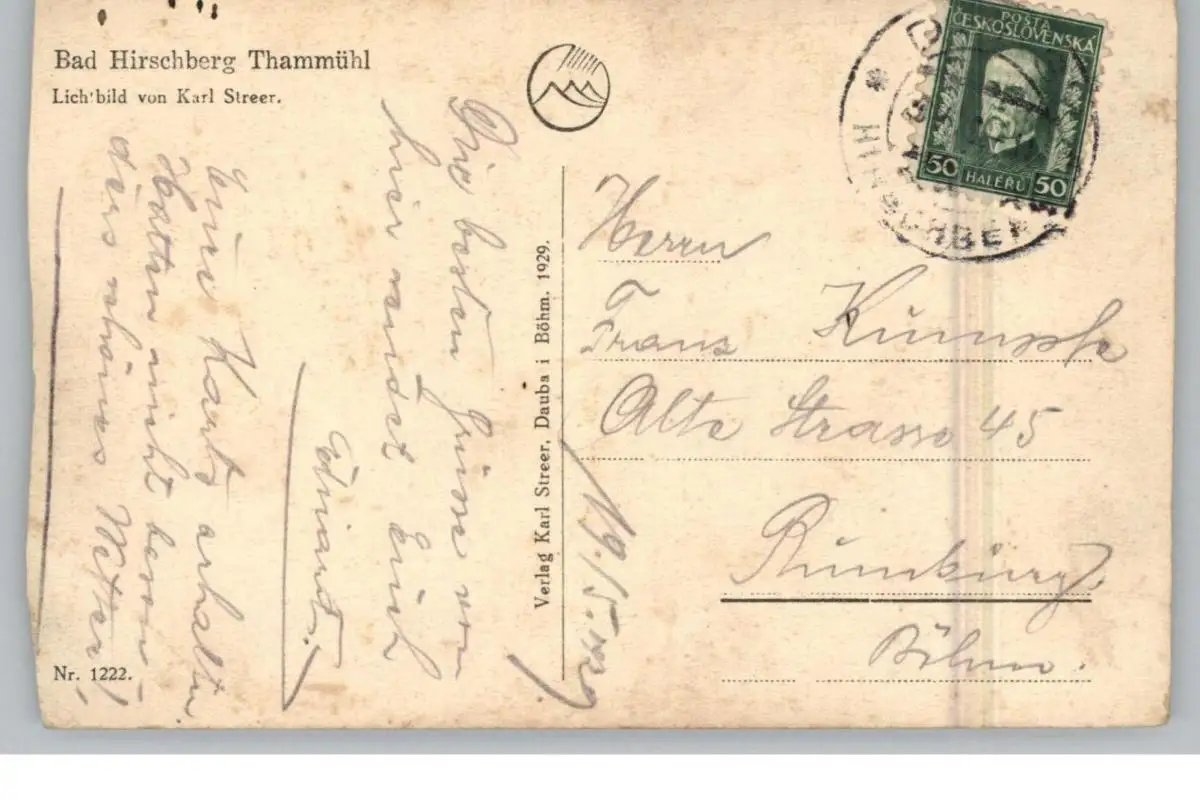 Bad Hirschberg Thammühl
Lichtbild von Karl Streer.
Die besten Grüsse von
hier sendet Euch
Eduard.
Eure Karte erhalten.
Hatten nicht beson
ders schönes Wetter!
Nr. 1222.
Verlag Karl Streer, Dauba i Böhm. 1929.
19./5. 1929
POSTA
ČESKOSLOVENSKÁ
50 HALÉŘŮ 50
HIRSCHBERG
Herrn
Franz Kumpfe
Alte Strasse 45
Rumburg.
Böhm.